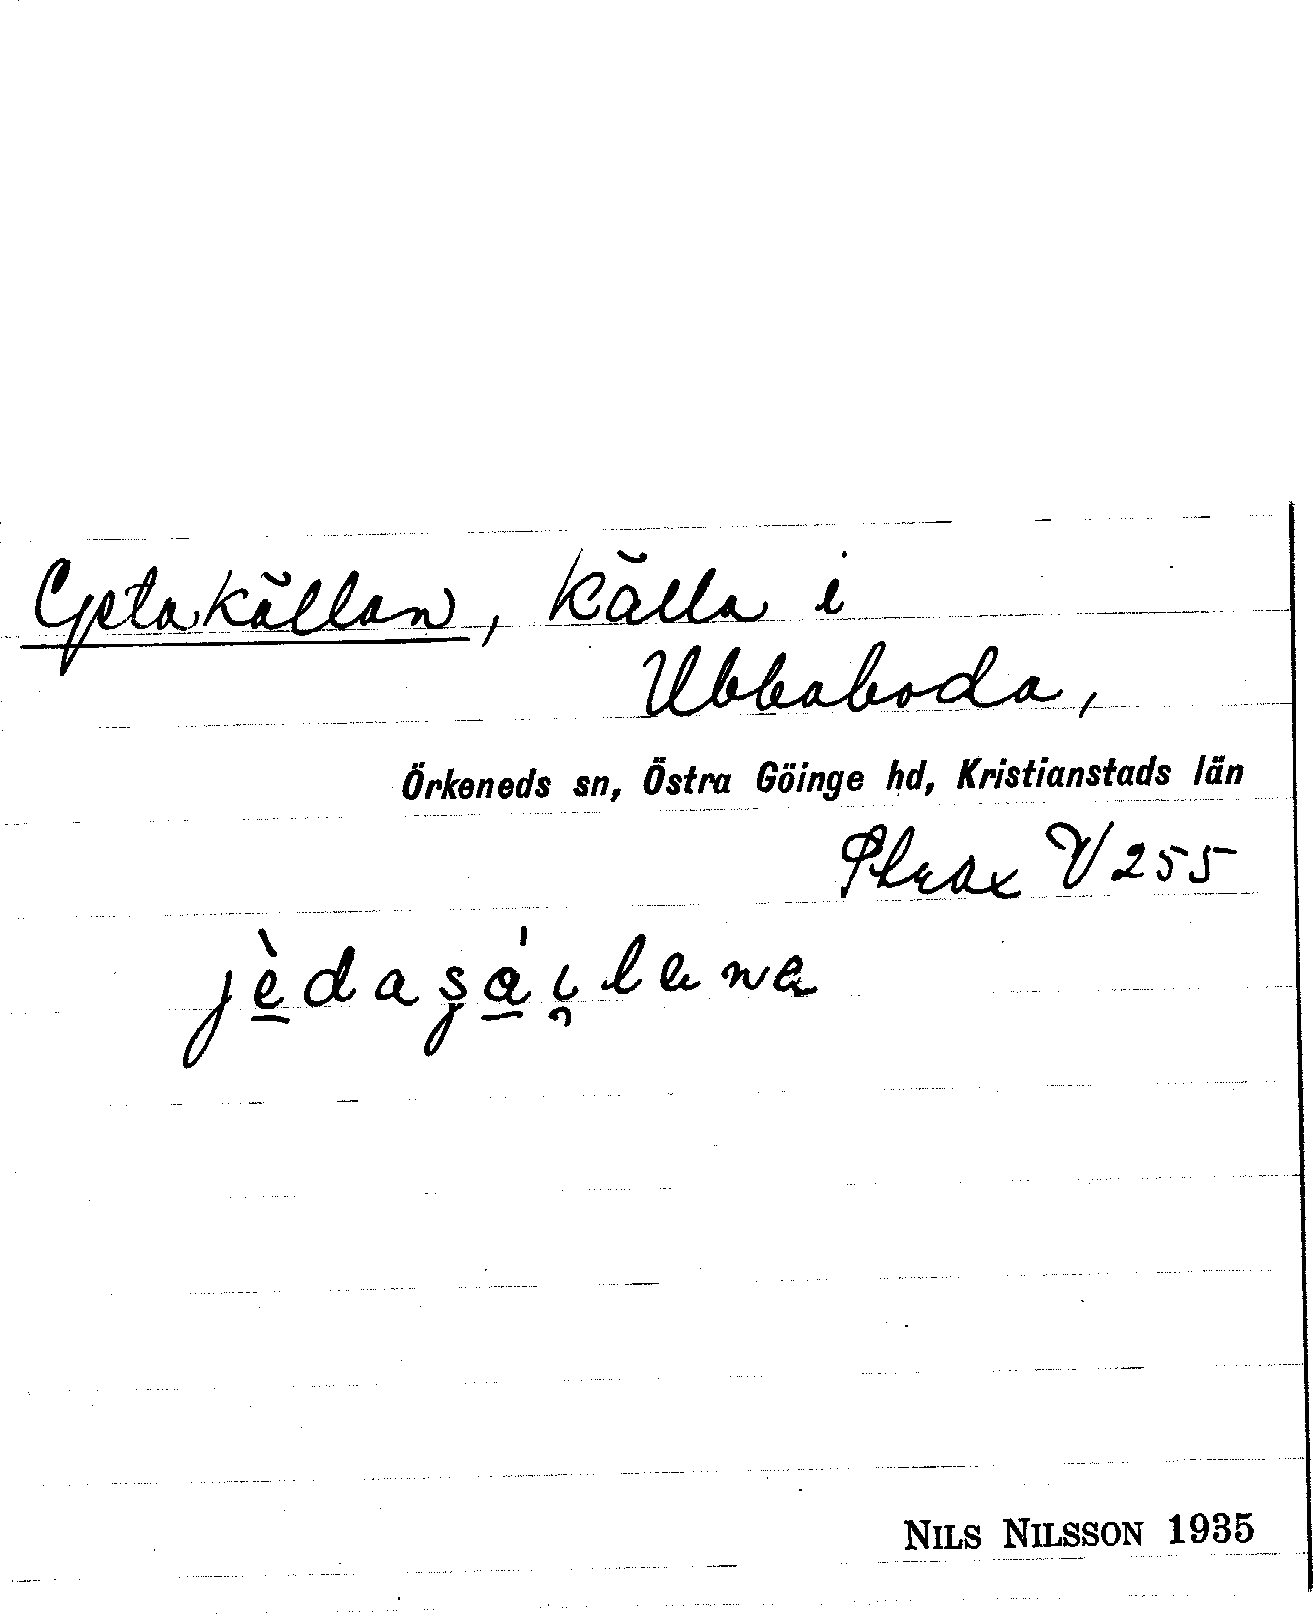 Getakällan, källa i
Ubbaboda,
Örkeneds sn, Östra Göinge hd, Kristianstads län
V 255
jèdaşái̯lena
NILS NILSSON 1935